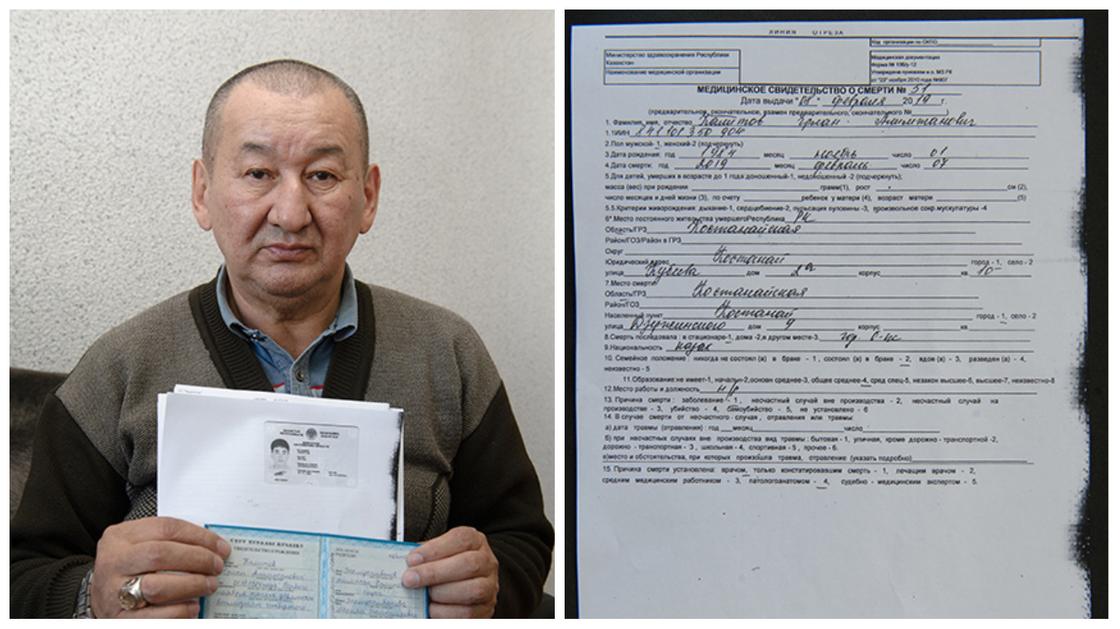 СВИДЕТЕЛЬСТВО О РОЖДЕНИИ
ЛИНИЯ ОТРЕЗА
Код организации по ОКПО
Министерство здравоохранения Республики
Казахстан
Наименование медицинской организации
Медицинская документация
Форма № 106/у-12
Утверждена приказом и.о. МЗ РК
от "23" ноября 2010 года №907
МЕДИЦИНСКОЕ СВИДЕТЕЛЬСТВО О СМЕРТИ № 51
Дата выдачи "08" февраля 2019 г.
(предварительное, окончательное, взамен предварительного, окончательного №)
1. Фамилия, имя, отчество Калитов
1.1ИИН 841101350904
2.Пол мужской-1, женский-2 (подчеркнуть)
3.Дата рождения: год 1984 месяц ноябрь число 01
4.Дата смерти: год 2019 месяц февраль число 07
5.Для детей, умерших в возрасте до 1 года доношенный-1, недоношенный -2 (подчеркнуть);
масса (вес) при рождении грамм(1), рост см (2),
число месяцев и дней жизни (3), по счету ребенок у матери (4), возраст матери (5)
5.5.Критерии живорождения: дыхание-1, сердцебиение-2, пульсация пуповины -3, произвольное сокр.мускулатуры -4
6*.Место постоянного жительства умершегоРеспублика РК
Область/ГРЗ Костанайская
Район/ГОЗ/Район в ГРЗ
Округ
Юридический адрес Костанай город - 1, село - 2
улица Кубеева дом 2а корпус кв 10
7.Место смерти
Область/ГРЗ Костанайская
Район/ГОЗ
Населенный пункт Костанай город - 1, село - 2
улица Дзержинского дом 9 корпус кв
8.Смерть последовала : в стационаре-1, дома -2,в другом месте-3
9.Национальность казах
10. Семейное положение : никогда не состоял (а) в браке - 1 , состоял (а) в браке - 2, вдов (а) - 3, разведен (а) - 4,
неизвестно - 5
11.Образование:не имеет-1, началь-2,основн среднее-3, общее среднее-4, сред спец-5, незакон высшее-6, высшее-7, неизвестно-8
12.Место работы и должность н/р
13. Причина смерти : заболевание - 1, несчастный случай вне производства - 2, несчастный случай на
производстве - 3, убийство - 4, самоубийство - 5, не установлено - 6
14. В случае смерти от несчастного случая , отравления или травмы:
а) дата травмы (отравления) : год месяц число
б) при несчастных случаях вне производства вид травмы : бытовая - 1, уличная, кроме дорожно - транспортной -2,
дорожно - транспортная - 3 , школьная - 4, спортивная - 5 , прочее - 6.
в)место и обстоятельства, при которых произошла травма, отравление (указать подробно)
15. Причина смерти установлена: врачом, только констатировавшим смерть - 1, лечащим врачом - 2,
средним медицинским работником - 3, патологоанатомом - 4, судебно - медицинским экспертом - 5.